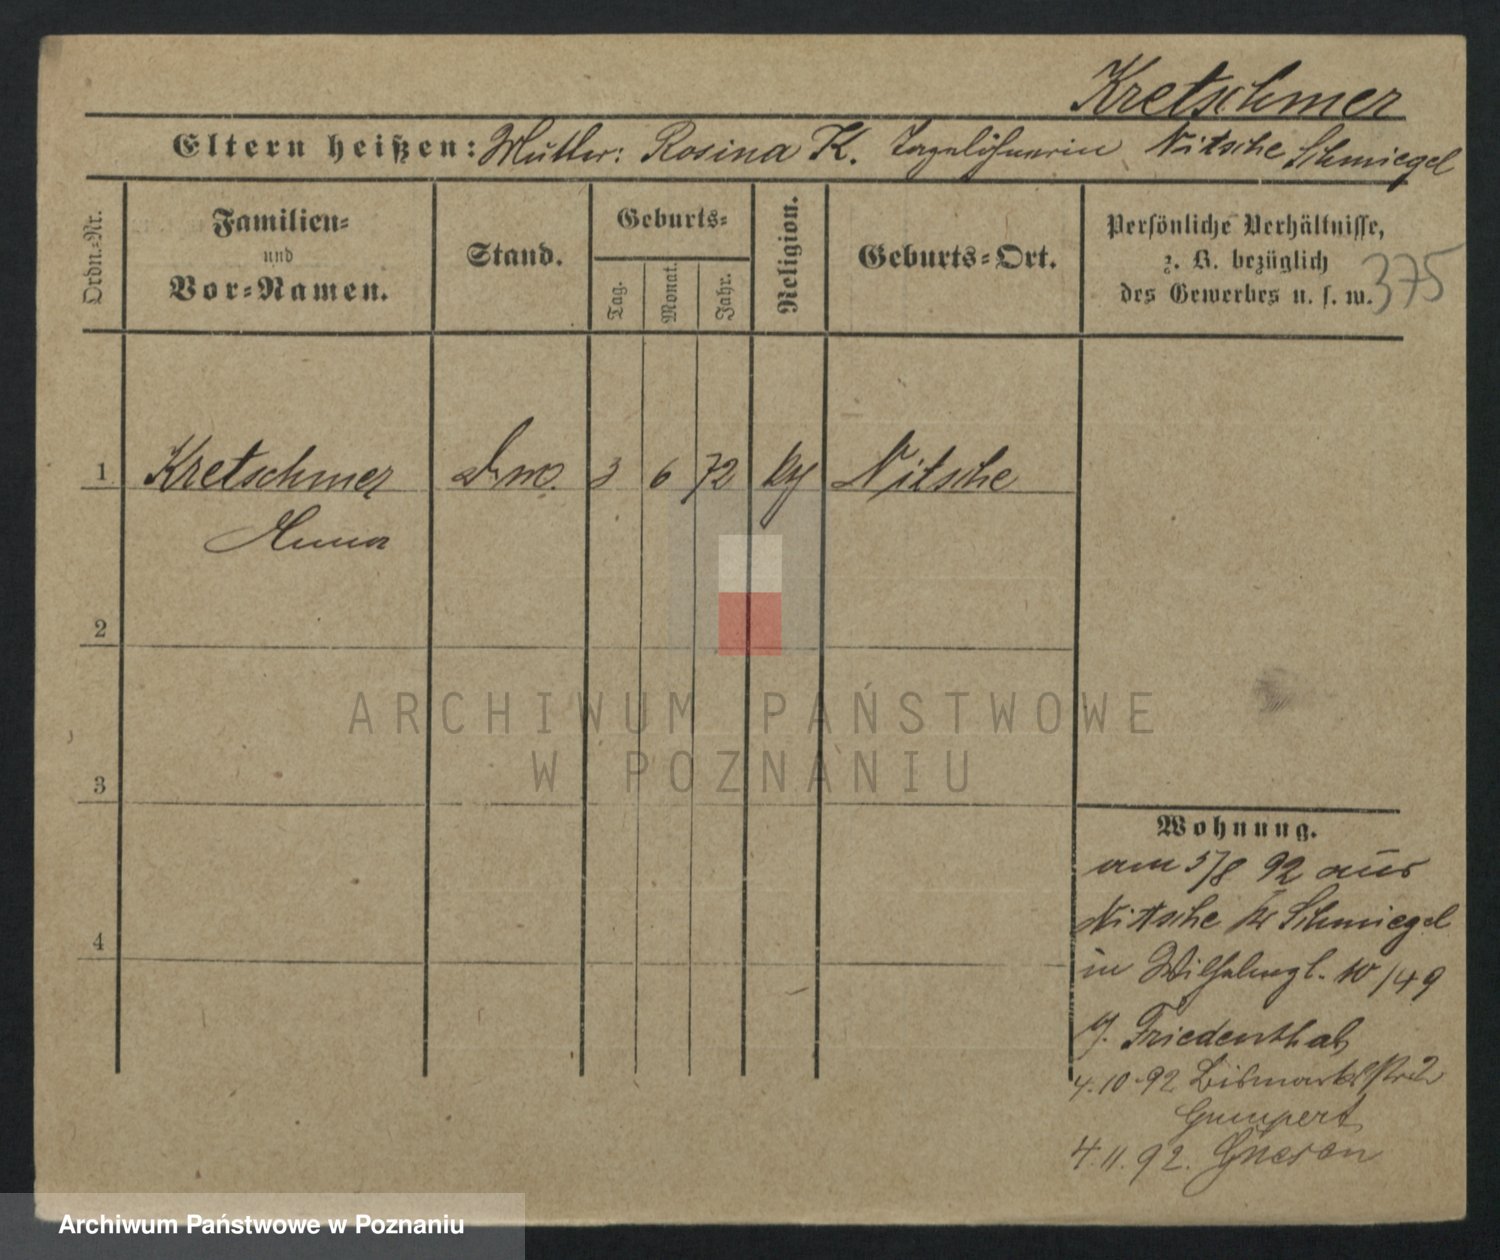 Kretschmer
Eltern heißen: Mutter: Rosina K. Tagelöhnerin Nitsche Schmiegel
Ordn.-Nr.
Familien-
und
Vor-Namen.
Stand.
Geburts-
Tag.
Monat.
Jahr.
Religion.
Geburts-Ort.
Persönliche Verhältnisse,
z. B. bezüglich
des Gewerbes u. s. w.
375
1 Kretschmer 3 6 72 Nitsche
Anna
2
3
4
Wohnung.
am 5/8 92 aus
Nitsche Kr Schmiegel
in Wilhelmspl. 10/49
Friedenthal
4.10.92 Bismarckstr 2
Gumpert
4.11.92. Gnesen
ARCHIWUM PAŃSTWOWE
W POZNANIU
Archiwum Państwowe w Poznaniu